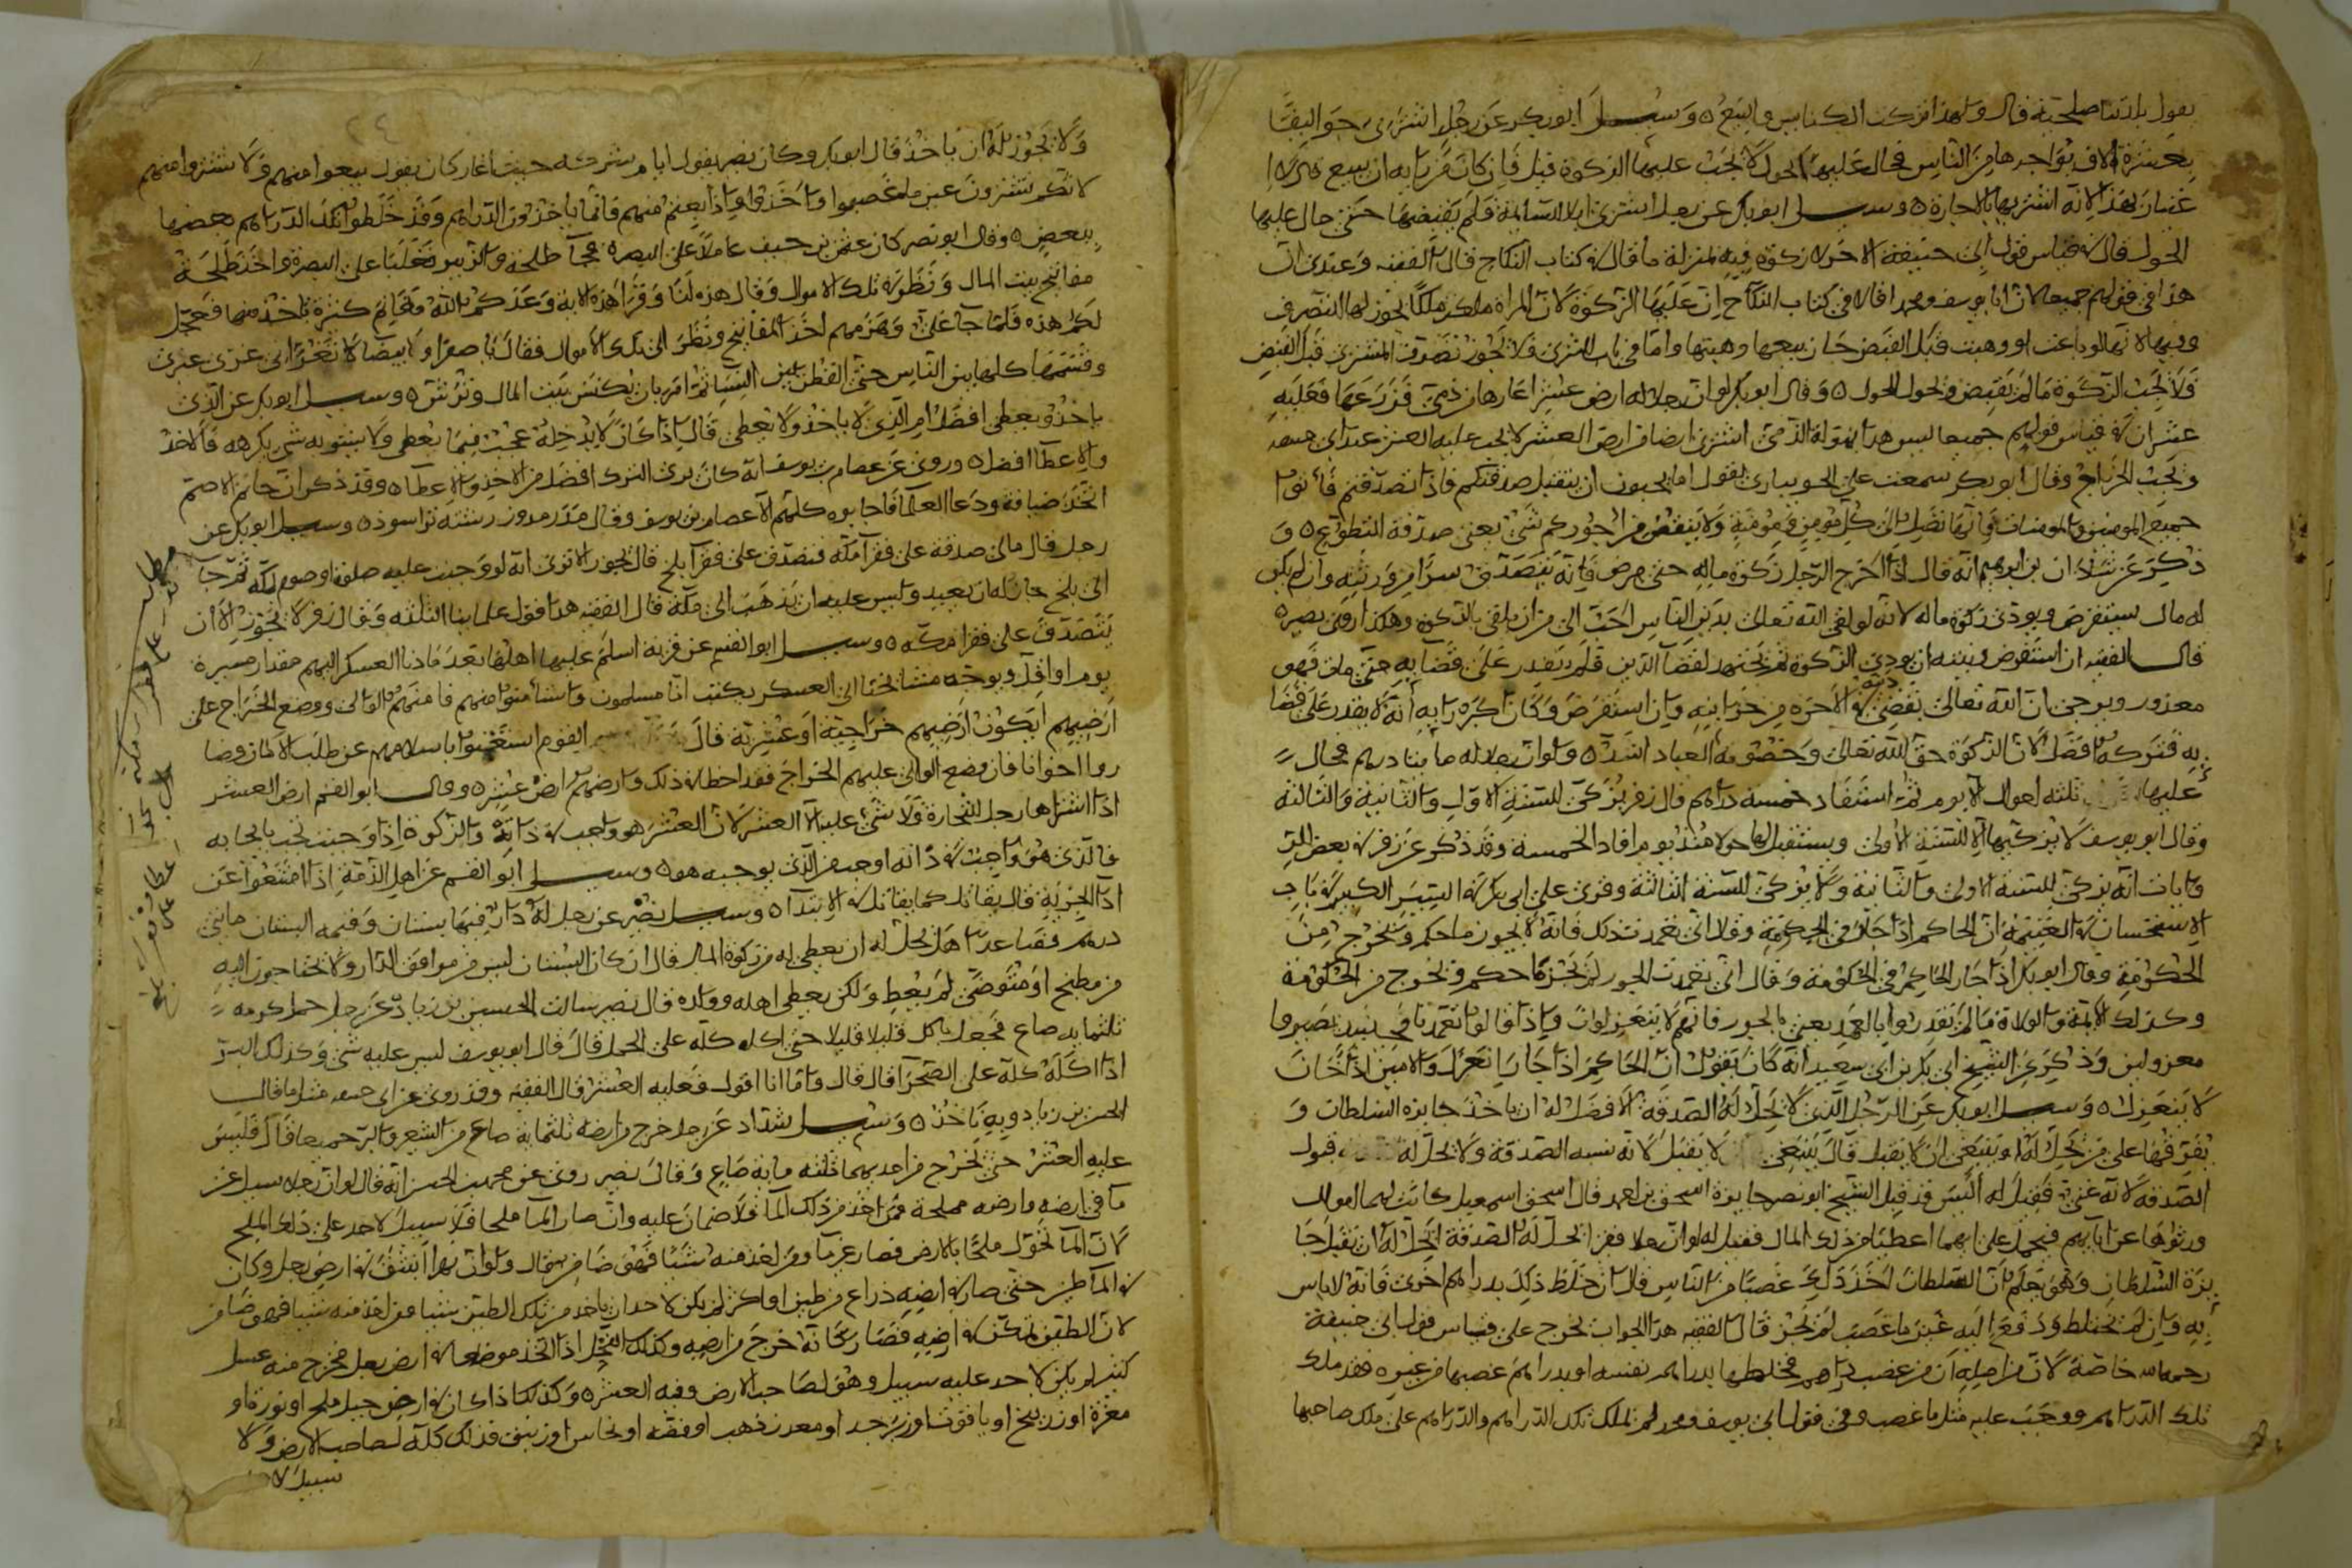 يقول بلدتنا صلحية قال ولهذا تركت الكنايس والبيع ٥ وسيل ابو بكر عن رجل اشترى جواليقا
بعشرة الاف يؤاجرها من الناس فحال عليها الحول لا تجب عليها الزكوة قيل فان كان من رايه ان يبيع
لانه اشتريها للاجارة ٥ وسيل ابو بكر عن رجل اشترى ابلا سائمة فلم يقبضها حتى حال عليها
الحول قال في قياس قول ابي حنيفة الاخر لا زكوة فيه بمنزلة ما قال في كتاب النكاح قال الفقيه وعندي ان
هذا في قولهم جميعا لان ابا يوسف ومحمدا قالا في كتاب النكاح ان عليها الزكوة لان المراة ملكت ملكا يجوز لها التصرف
وفيها لانها لو باعت او وهبت قبل القبض جاز بيعها وهبتها واما في باب الشرى فلا يجوز تصرف المشتري قبل القبض
فلا تجب الزكوة ما لم يقبض ويحول الحول ٥ وقال ابو بكر لو ان رجلا له ارض عشر اعارها من ذمي فزرعها فعليه
عشران في قياس قولهم جميعا ليس هذا بمنزلة الذمي اشترى ارضا من ارض العشر لا يجب عليه العشر عند ابي حنيفة
وتجب الخراج وقال ابو بكر سمعت علي الجويباري يقول اما تحبون ان يتقبل صدقتكم فاذا تصدقتم فانووا
جميع المومنين والمومنات فانها تصل الى كل مومن ومومنة ولا ينقص من اجوركم شيء يعني صدقة التطوع ٥ و
ذكر عن شداد بن ابرهيم انه قال اذا اخرج الرجل زكوة ماله حتى مرض فانه يتصدق سرا من ورثته وان لم يكن
له مال يستقرض ويودي زكوة ماله لانه لو لقي الله تعالى بدين الناس احب الي من ان يلقى بالزكوة وهكذا روى نصير
قال الفقيه ان استقرض ونيته ان يودي الزكوة ثم يجتهد لقضا الدين فلم يقدر على قضايه حتى مات فهو
معذور ويرجى ان الله تعالى يقضي دينه في الاخرة من خزاينه وان استقرض وكان اكبر رايه انه لا يقدر على قضا
يه فتركه افضل لان الزكوة حق الله تعالى وخصومة العباد اشد ٥ ولو ان رجلا له مايتا درهم فحال
عليها ثلثة احوال الا يوم ثم استفاد خمسة دراهم قال زفر يزكي للسنة الاولى والثانية والثالثة
وقال ابو يوسف لا يزكيها الا للسنة الاولى ويستقبل لها حولا منذ يوم افاد الخمسة وقد ذكر عن زفر في بعض
الروايات انه يزكي للسنة الاولى والثانية ولا يزكي للسنة الثالثة وقرئ على ابي بكر في السير الكبير في باب
الاستحسان في الغنيمة ان الحاكم اذا جار في الحكومة وقال اني تعمدت ذلك فانه لا يجوز ما حكم ويخرج من
الحكومة وقال ابو بكر اذا جار الحاكم في الحكومة وقال اني تعمدت الجور لم يجز ما حكم ويخرج من الحكومة
وكذلك الايمة والولاة ما لم يقدروا بالعمد يعني بالجور فانهم لا ينعزلون واذا قالوا تعمدنا فحينيذ يصيروا
معزولين وذكر عن الشيخ ابي بكر بن ابي سعيد انه كان يقول ان الحاكم اذا جار انعزل والامين اذا خان
لا ينعزل ٥ وسيل ابو بكر عن الرجل الذي لا تحل له الصدقة الافضل له ان ياخذ جايزة السلطان و
يفرقها على من تحل له او ينبغي ان لا يقبل قال ينبغي لا يقبل لانه يشبه الصدقة ولا يحل له قبول
الصدقة لانه غني فقيل له اليس قد قبل الشيخ ابو نصر جايزة اسحق بن احمد قال اسحق اسمعيل كانت لهما اموال
ورثوها عن ابايهم فيحمل على انهما اعطيا من ذلك المال فقيل له لو ان رجلا فقيرا تحل له الصدقة ايحل له ان يقبل جا
يزة السلطان وهو يعلم ان السلطان اخذ ذلك غصبا من الناس قال ان خلط ذلك بدراهم اخرى فانه لا باس
به وان لم يختلط ودفع اليه عين ما غصب لم يجز قال الفقيه هذا الجواب يخرج على قياس قول ابي حنيفة
رحمه الله خاصة لان من اصله ان من غصب دراهم فخلطها بدراهم نفسه او بدراهم غصبها من غيره فقد ملك
تلك الدراهم ووجب عليه مثل ما غصب وفي قول ابي يوسف ومحمد لم يملك تلك الدراهم والدراهم على ملك صاحبها
ولا يجوز له ان ياخذ قال ابو بكر وكان نصير يقول ايام حيث اغار كان يقول بيعوا منهم ولا تشتروا منهم
لانكم تشترون عين ما غصبوا واخذوا واذا بعتم منهم فانما ياخذون الدراهم وقد خلطوا تلك الدراهم بعضها
ببعض ٥ وقال ابو نصر كان عثمن بن حنيف عاملا على البصرة فجآ طلحة والزبير وتغلبا على البصرة واخذ طلحة
مفاتيح بيت المال ونظر في تلك الاموال وقال هذه لنا وقرا هذه الاية وعدكم الله مغانم كثيرة تاخذونها فعجل
لكم هذه فلما جآ علي وهزمهم اخذ المفاتيح ونظر الى تلك الاموال فقال يا صفرا ويا بيضا لا تغريني غري غيري
وقسمها كلها بين الناس حتى القطن بين النسا ثم امر بان يكنس بيت المال وترش ٥ وسيل ابو بكر عن الذي
ياخذ ويعطي افضل ام الذي لا ياخذ ولا يعطي قال اذا كان لا يدخله عجب فيما يعطي ولا ينويه شي يكرهه فالاخذ
والاعطآ افضل ٥ وروي عن عصام بن يوسف انه كان يرى الترك افضل من الاخذ والاعطآ ٥ وقد ذكر ان حاتم الاصم
اتخذ ضيافة ودعا العلمآ فاجابوه كلهم الا عصام بن يوسف وسيل ابو بكر عن
رجل قال مالي صدقة على فقرآ مكة فتصدق على فقرآ بلخ قال يجوز الا ترى انه لو وجبت عليه صلوة او صوم بمكة ثم رجع
الى بلخ جاز له ان يعيد وليس عليه ان يذهب الى مكة قال الفقيه هذا قول علماينا الثلثة وقال زفر لا يجوز الا ان
يتصدق على فقرا مكة ٥ وسيل ابو القسم عن قرية اسلم عليها اهلها بعد ما دنا العسكر اليهم مقدار مسيرة
يوم او اقل ويوجه مشايخنا الى العسكر بكتب انا مسلمون واستأمنوا منهم فامنهم الوالي ووضع الخراج على
ارضيهم ايكون ارضيهم خراجية او عشرية قال القوم استغنوا باسلامهم عن طلب الامان وصا
روا اخوانا فان وضع الوالي عليهم الخراج فقد اخطا في ذلك وارضهم ارض عشر ٥ وقال ابو القسم ارض العشر
اذا اشتراها رجل للتجارة ولا شيء عليه الا العشر لان العشر هو واجب في ذاته والزكوة اذا وجبت تجب بايجابه
فالذي هو واجب في ذاته اوجب من الذي يوجبه هو ٥ وسيل ابو القسم عن اهل الذمة اذا امتنعوا عن
ادا الجزية قال يقاتل كما يقاتل في الابتدآ ٥ وسيل نصير عن رجل له دار فيها بستان وقيمة البستان مايتي
درهم فصاعدا هل يحل له ان يعطى له من زكوة المال قال ان كان البستان ليس من مرافق الدار ولا يحتاجون اليه
من مطبخ او متوضى لم يعط ولكن يعطى اهله وولده قال نصير سالت الحسن بن زياد عن رجل حمل كرمه
ثلثماية صاع فجعل ياكل قليلا قليلا حتى اكله كله على الحمل قال قال ابو يوسف ليس عليه شي وكذلك البر
اذا اكله كله على الصحرا قال قال واما انا اقول فعليه العشر قال الفقيه وقد روي عن ابي حنيفة مثل ما قال
الحسن بن زياد وبه ناخذ ٥ وسيل شداد عن رجل خرج من ارضه ثلثماية صاع من الشعير والبر جميعا قال فليس
عليه العشر حتى تخرج من احديهما ثلثة ماية صاع وقال نصير روي عن محمد بن الحسن انه قال لو ان رجلا سيل عن
ما في ارضه وارضه مملحة فمن اخذ من ذلك المآ فلا ضمان عليه وان صار المآ ملحا فلا سبيل لاحد على ذلك الملح
لان المآ تحول ملحا بالارض فصار غرما ومن اخذ منه شيئا فهو ضامن قال ولو ان نهرا انبثق في ارض رجل وكان
في المآ طين حتى صار في ارضه ذراع من طين او اكثر لم يكن لاحد ان ياخذ من تلك الطين شيئا ومن اخذ منه شيئا فهو ضامن
لان الطين تمكن في ارضه فصار كانه خرج من ارضه وكذلك النحل اذا اتخذ موضعا في ارض رجل فخرج منه عسل
كثير لم يكن لاحد عليه سبيل وهو لصاحب الارض وفيه العشر ٥ وكذلك اذا كان في ارض جبل ملح او نورة او
مغرة او زرنيخ او ياقوت او زبرجد او معدن ذهب او فضة او نحاس او زيبق فذلك كله لصاحب الارض ولا
سبيل لاحد